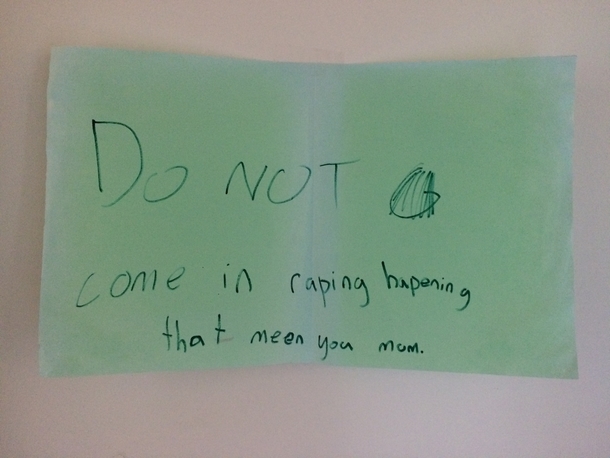 DO NOT
come in raping hapening
that meen you mom.